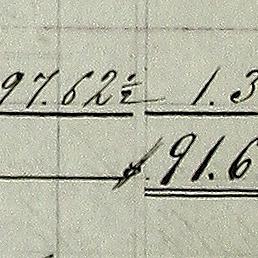 97.62½ 1.3
$.91.6